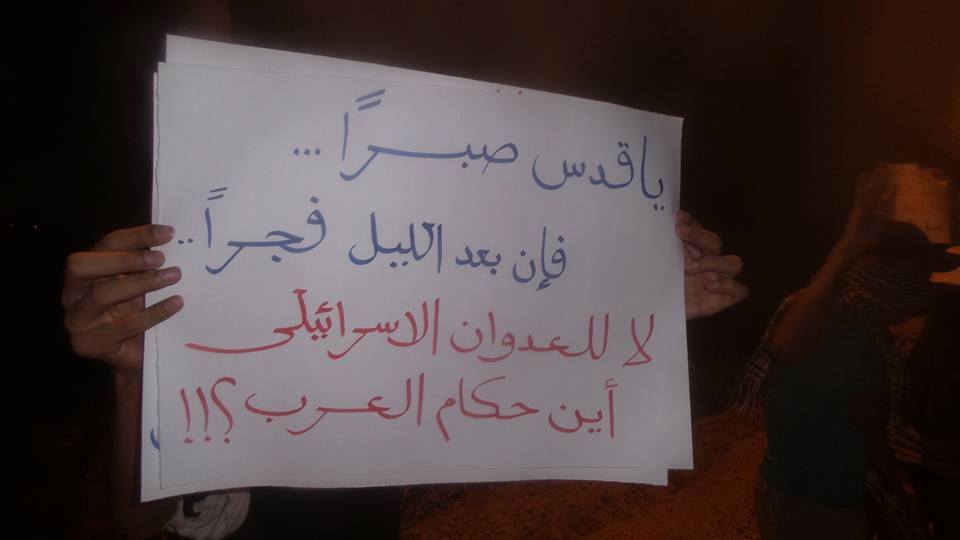 يا قدس صبراً ...
فإن بعد الليل فجراً ..
لا للعدوان الاسرائيلى
أين حكام العرب ؟!!!